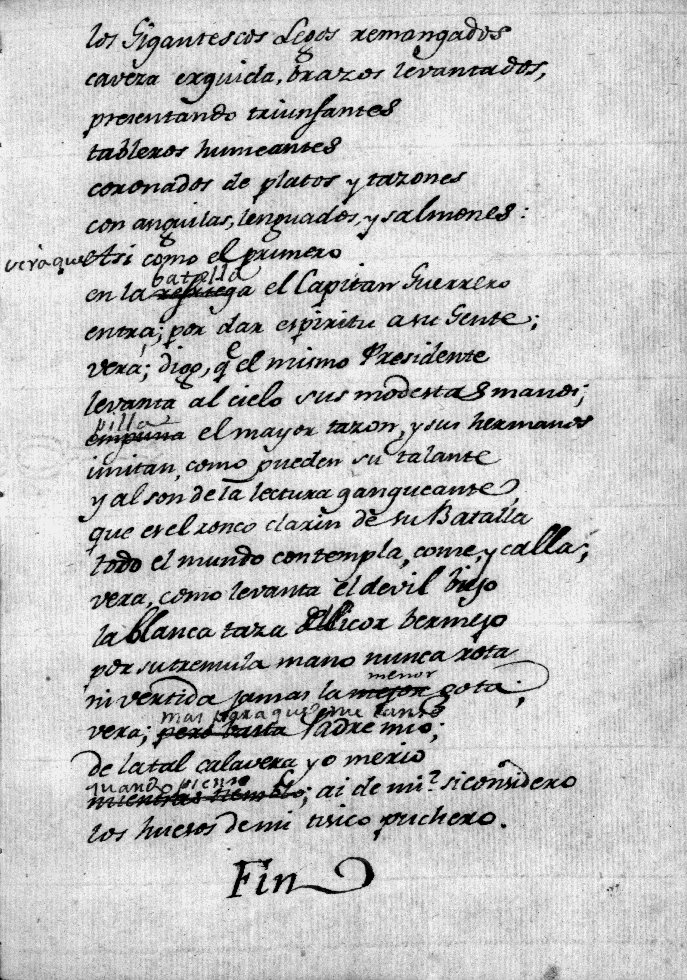 los Gigantescos Legos remangados
caveza erguida, brazos levantados,
presentando triunfantes
tableros humeantes
coronados de platos y tazones
con anguilas, lenguados, y salmones:
verà que Asi como el primero
batalla
en la refriega el Capitan Guerrero
entra; por dar espiritu a su Gente;
verá; digo, q.e el mismo Presidente
levanta al cielo sus modestas manos;
pilla
empuña el mayor tazon, y sus hermanos
imitan, como pueden su talante
y al son de la lectura gangueante,
que es el ronco clarin de su Batalla
todo el mundo contempla, come, y calla;
vera, como levanta el devil biejo
la blanca taza del licor bermejo
por su tremula mano nunca rota
menor
ni vertida jamas la mejor gota;
mas para que me canso
vera; pero basta Padre mio;
de la tal calavera yo me rio
quando pienso
mientras tiemblo; ai de mi! si considero
los huesos de mi tisico puchero.
Fin